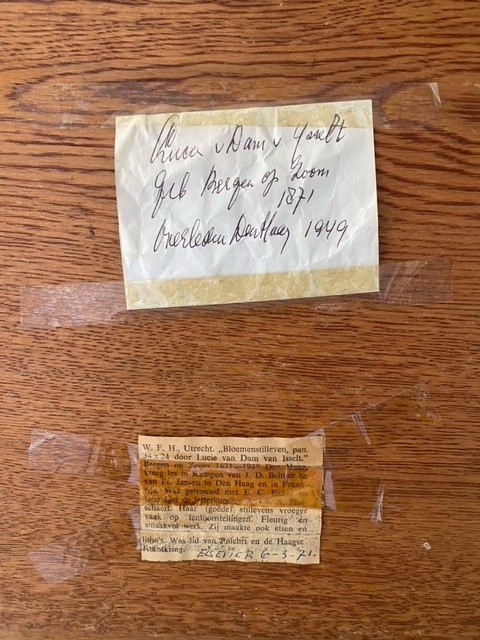 Lucia v Dam v Ysselt
geb Bergen op Zoom
1871
Overleden Den Haag 1949
W. F. H., Utrecht. „Bloemenstilleven, pan.
34 x 24 door Lucie van Dam van Isselt."
Bergen op Zoom 1871—1949 Den Haag,
kreeg les in Kampen van J. D. Belmer en
van Fr. Jansen in Den Haag en in Frank-
Was getrouwd met E. C.
schaert. Haar (goede) stillevens vroeger
vaak op tentoonstellingen. Fleurig en
smaakvol werk. Zij maakte ook etsen en
litho's. Was lid van Pulchri en de Haagse
Kunstkring. ELSEVIER 6-3-71.